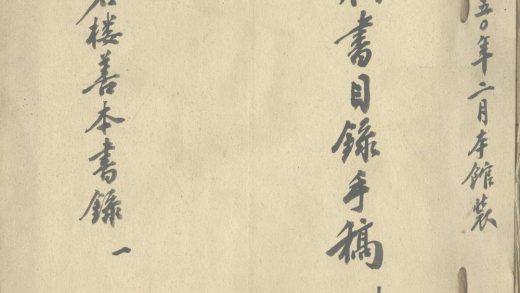 五〇年二月本館裝
書目錄手稿
楼善本書錄 一